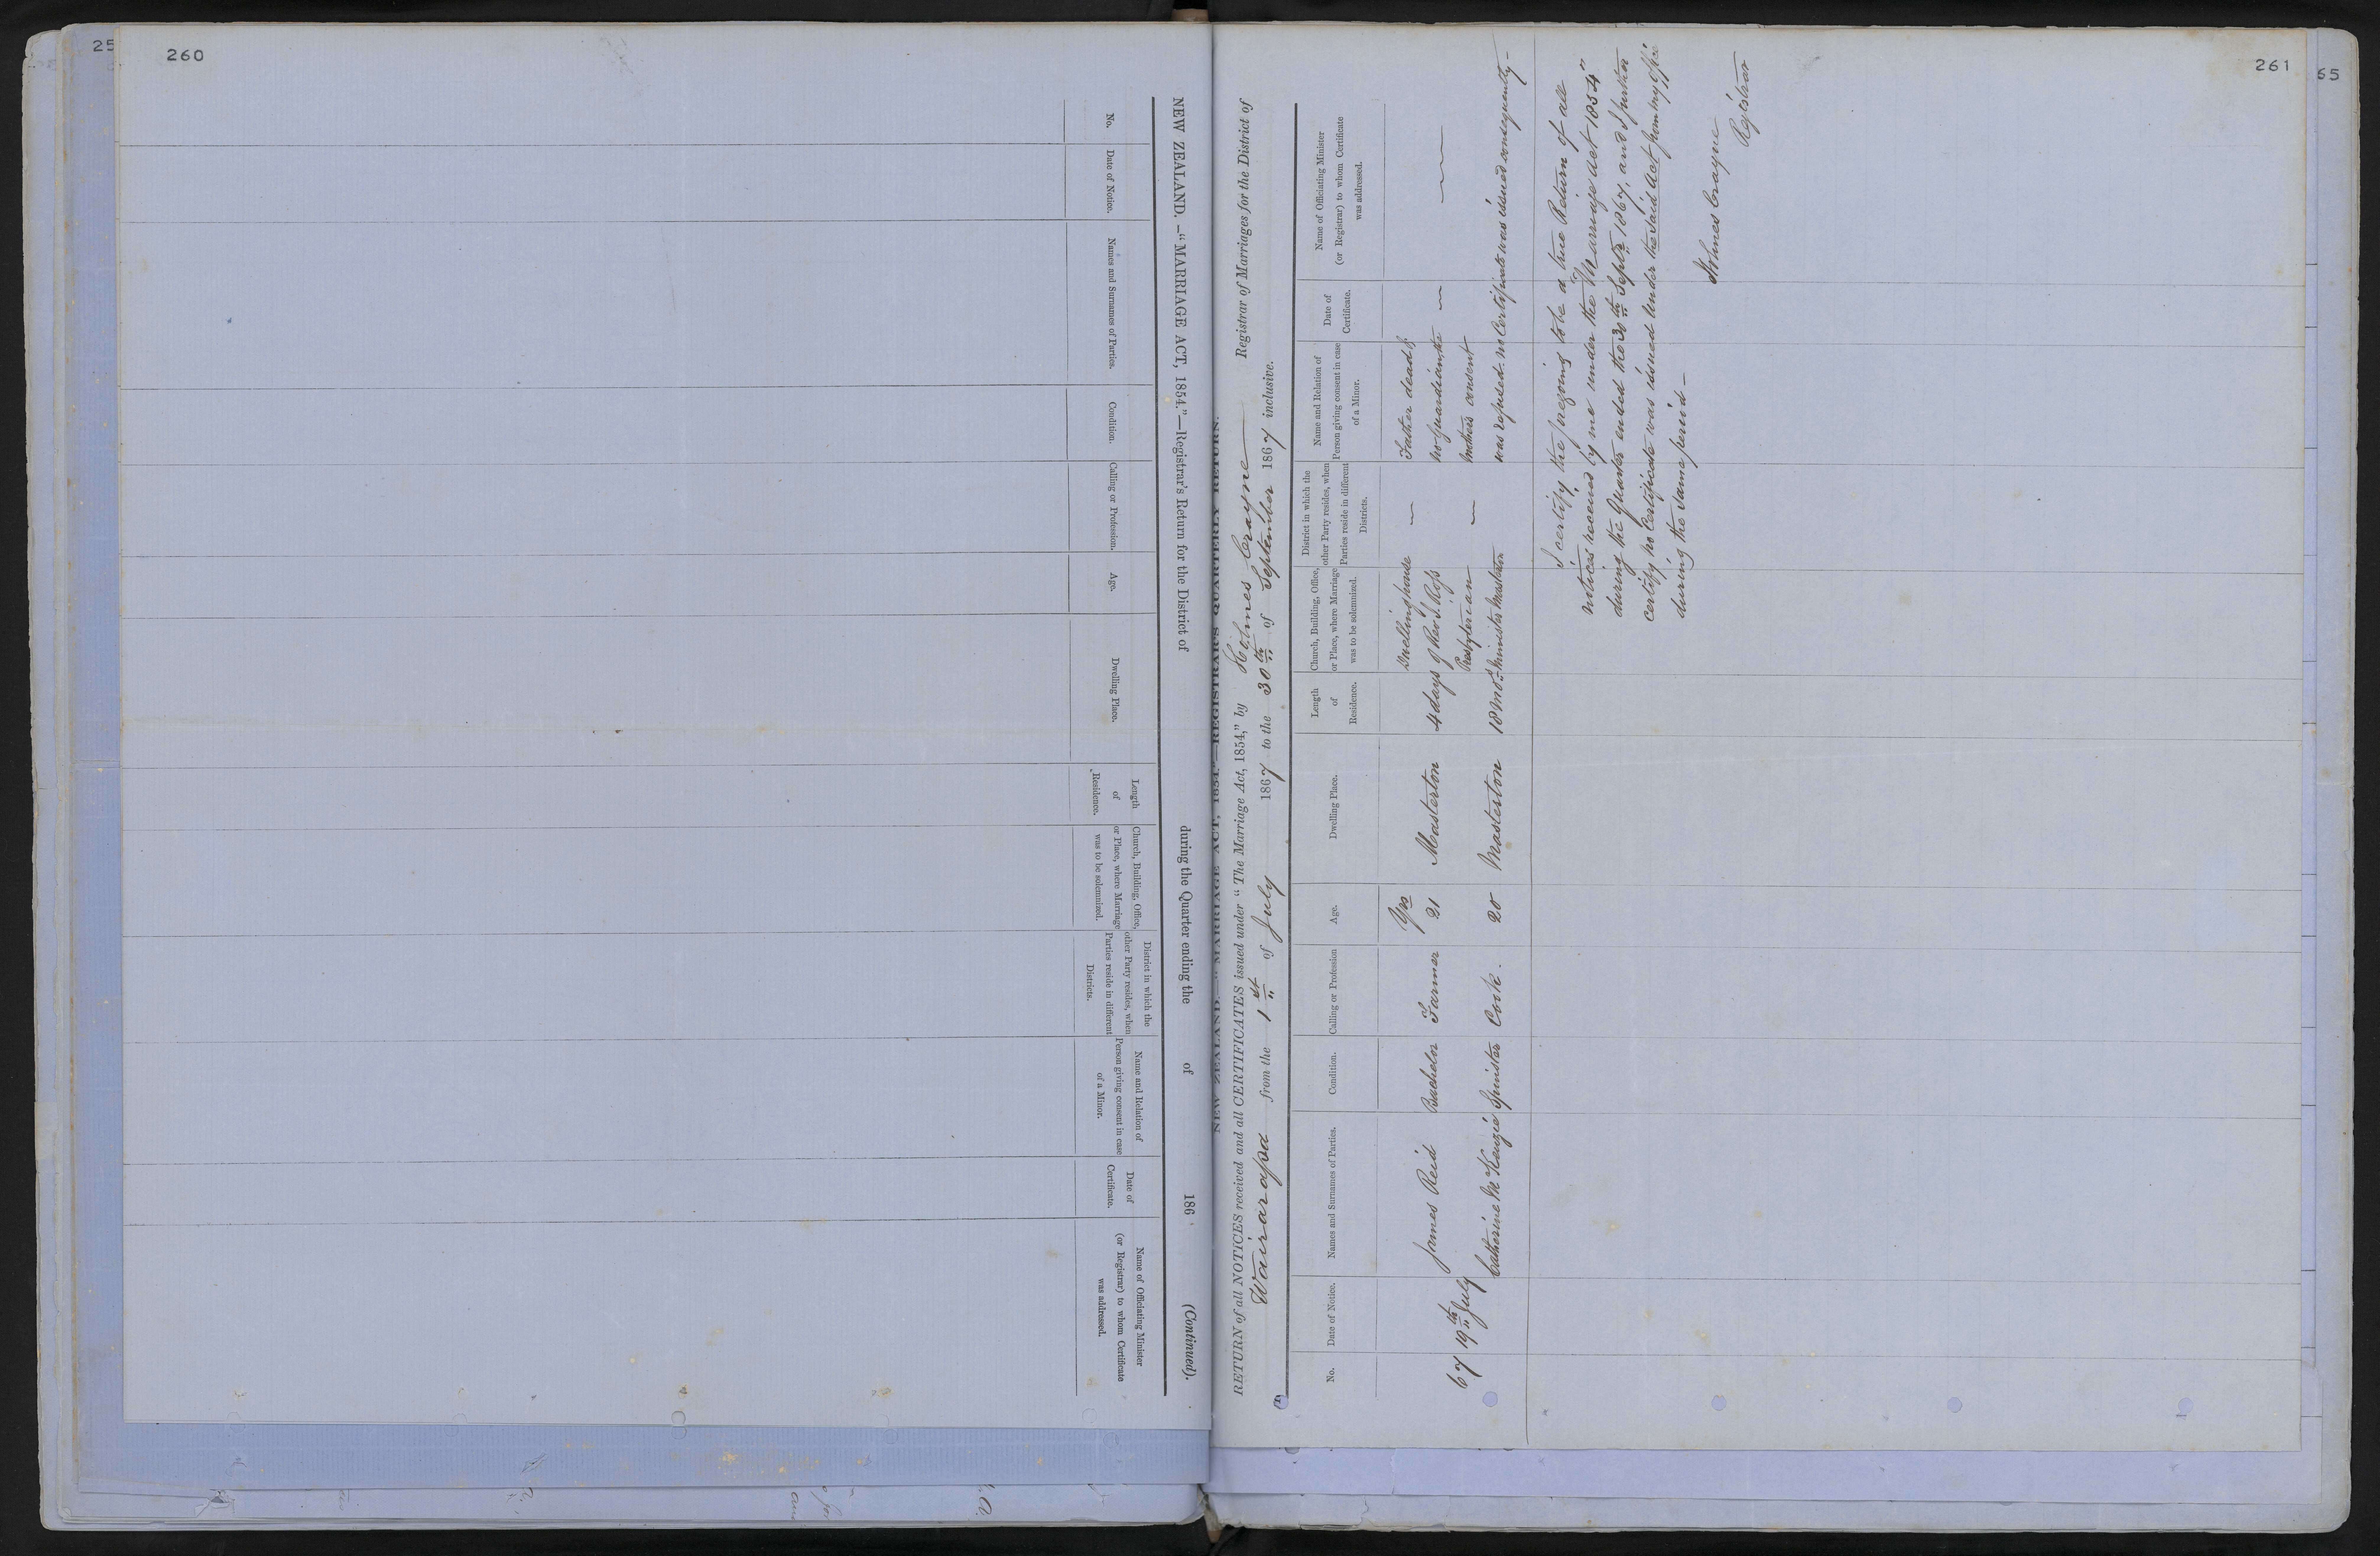 25
260
NEW ZEALAND.—"MARRIAGE ACT, 1854."—Registrar's Return for the District of during the Quarter ending the of 186 (Continued).
No.
Date of Notice.
Names and Surnames of Parties.
Condition.
Calling or Profession.
Age.
Dwelling Place.
Length
of
Residence.
Church, Building, Office,
or Place, where Marriage
was to be solemnized.
District in which the
other Party resides, when
Parties reside in different
Districts.
Name and Relation of
Person giving consent in case
of a Minor.
Date of
Certificate.
Name of Officiating Minister
(or Registrar) to whom Certificate
was addressed.
261
65
NEW ZEALAND.—"MARRIAGE ACT, 1854."—REGISTRAR'S QUARTERLY RETURN.
RETURN of all NOTICES received and all CERTIFICATES issued under "The Marriage Act, 1854," by Holmes Crayne Registrar of Marriages for the District of
Wairarapa from the 1st of July 1867 to the 30th of September 1867 inclusive.
No.
Date of Notice.
Names and Surnames of Parties.
Condition.
Calling or Profession
Age.
Dwelling Place.
Length
of
Residence.
Church, Building, Office,
or Place, where Marriage
was to be solemnized.
District in which the
other Party resides, when
Parties reside in different
Districts.
Name and Relation of
Person giving consent in case
of a Minor.
Date of
Certificate.
Name of Officiating Minister
(or Registrar) to whom Certificate
was addressed.
67
19th July
James Reid
Catherine McKenzie
Bachelor
Spinster
Farmer
Cook.
Yrs
21
20
Masterton
Masterton
4 days
18 mos
Dwelling house
of Revd J. Ross
Presbyterian
Minister Masterton
Father dead &
no guardian, the
mothers consent
was refused. no Certificate was issued consequently—
I certify the foregoing to be a true Return of all
notices received by me under the "Marriage Act 1854"
during the Quarter ended the 30th Septr 1867, and I further
certify no Certificate was issued under the said Act from my office
during the same period—
Holmes Crayne
Registrar